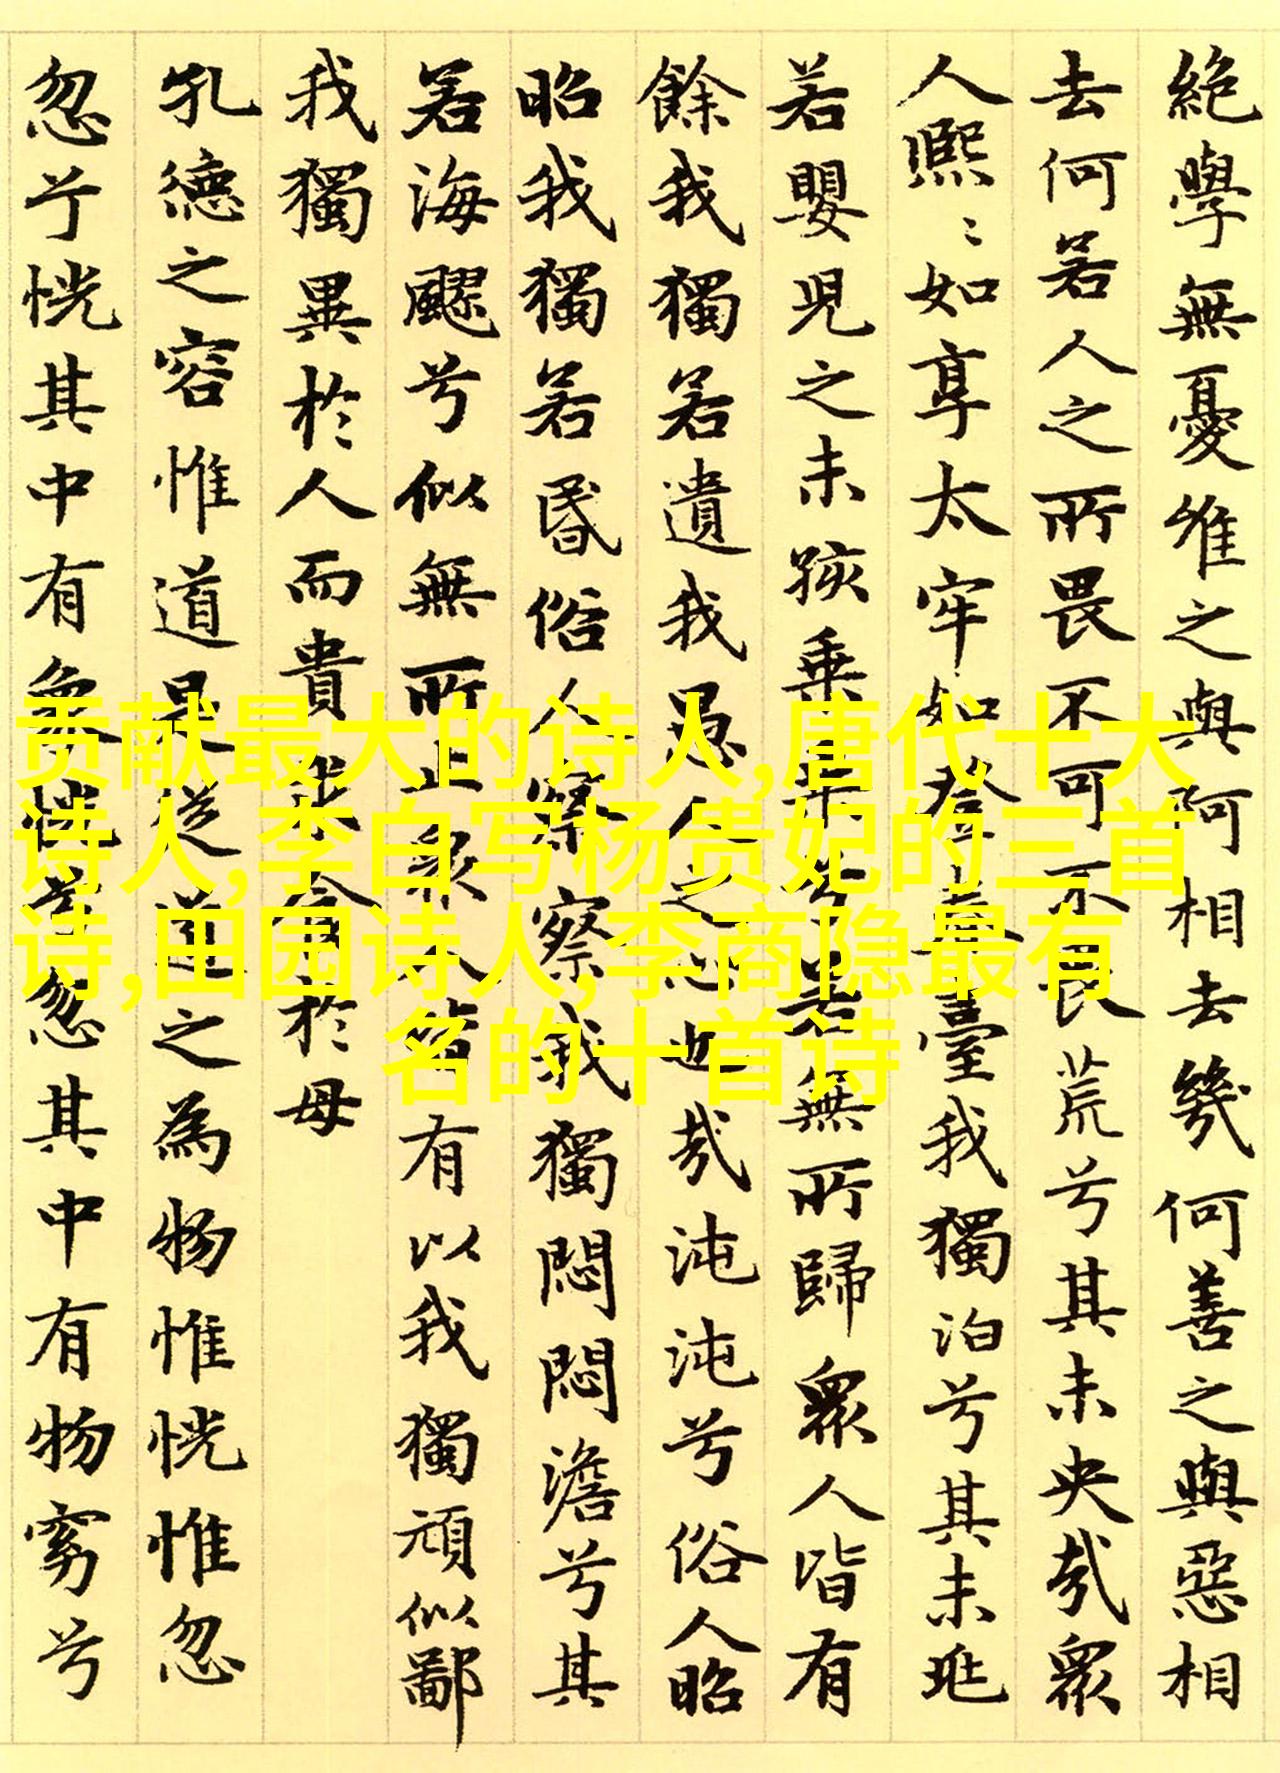 絶學無憂唯之與阿相去幾何善之與惡相
去何若人之所畏不可不畏荒兮其未央哉眾
人熙〻如享太牢如登春臺我獨泊兮其未兆
若嬰兒之未孩乗乗兮若無所歸眾人皆有
餘我獨若遺我愚人之心也哉沌沌兮俗人昭
昭我獨若昏俗人察察我獨悶悶澹兮其
若海飂兮似無所止眾人皆有以我獨頑似鄙
我獨異於人而貴求食於母
孔德之容惟道是従道之為物惟恍惟忽
忽兮恍其中有象恍兮忽其中有物窈兮
贡献最大的诗人,唐代十大
诗人,李白写杨贵妃的三首
诗,田园诗人,李商隐最有
名的十首诗